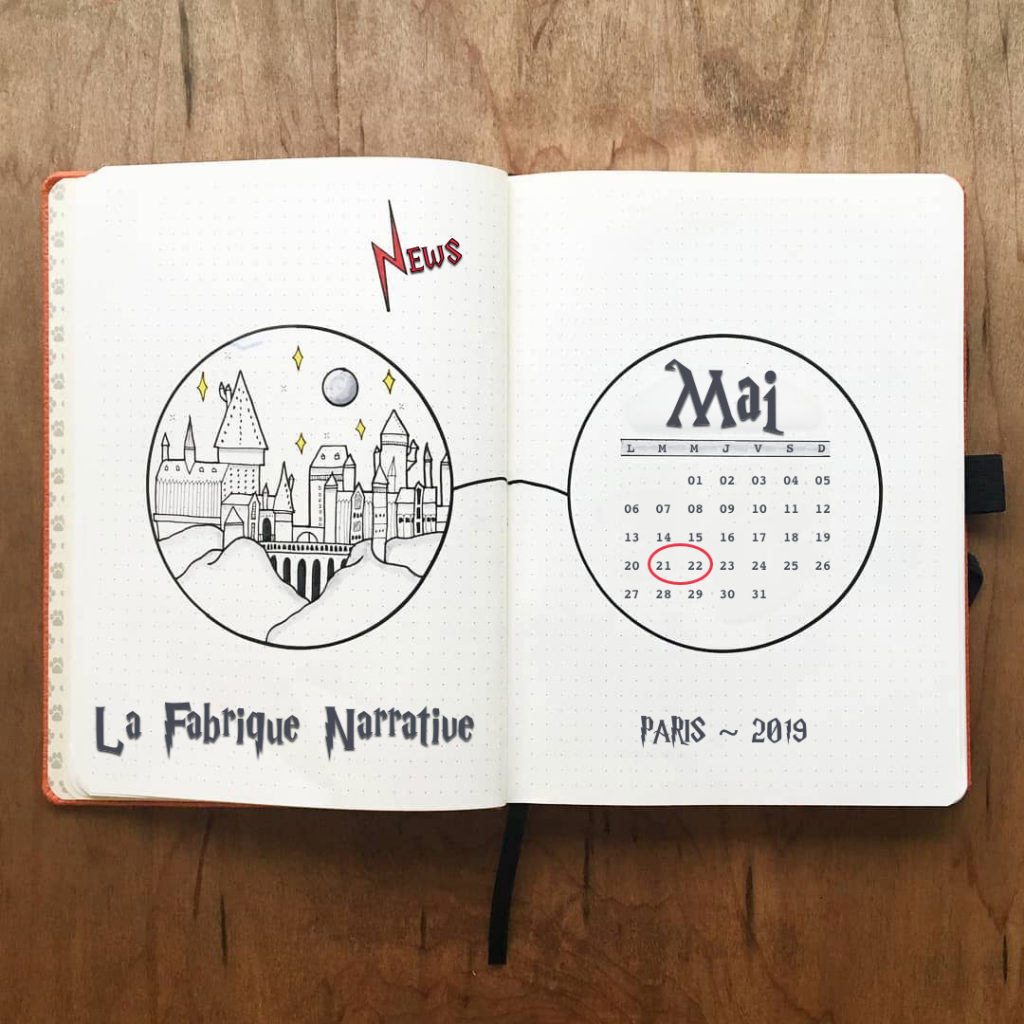 News
La Fabrique Narrative
Mai
L M M J V S D
01 02 03 04 05
06 07 08 09 10 11 12
13 14 15 16 17 18 19
20 21 22 23 24 25 26
27 28 29 30 31
PARIS ~ 2019